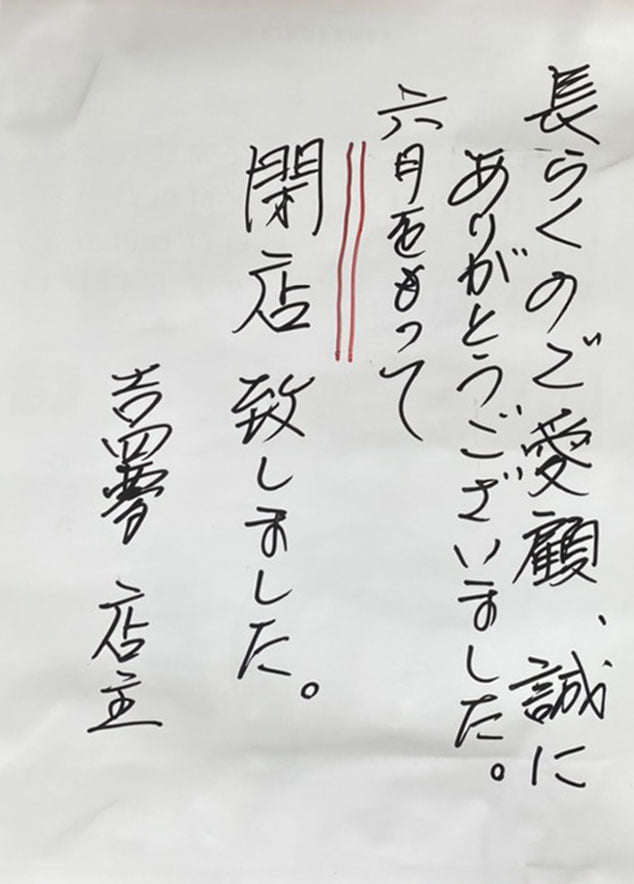 長らくのご愛顧、誠に
ありがとうございました。
六月をもって
閉店致しました。
吉四夢 店主